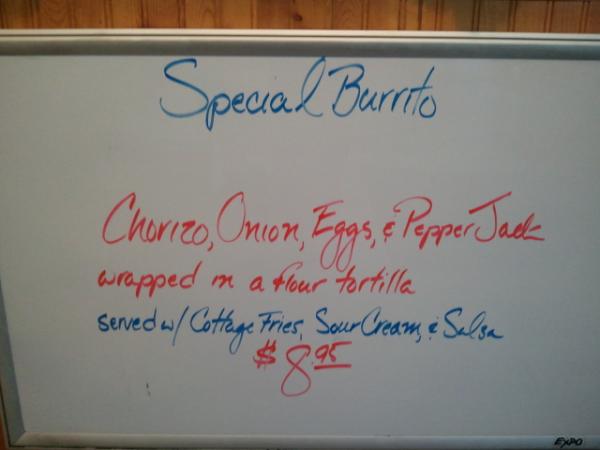 Special Burrito
Chorizo, Onion, Eggs, & Pepper Jack
wrapped in a flour tortilla
served w/ Cottage Fries, Sour Cream, & Salsa
$8.95
EXPO